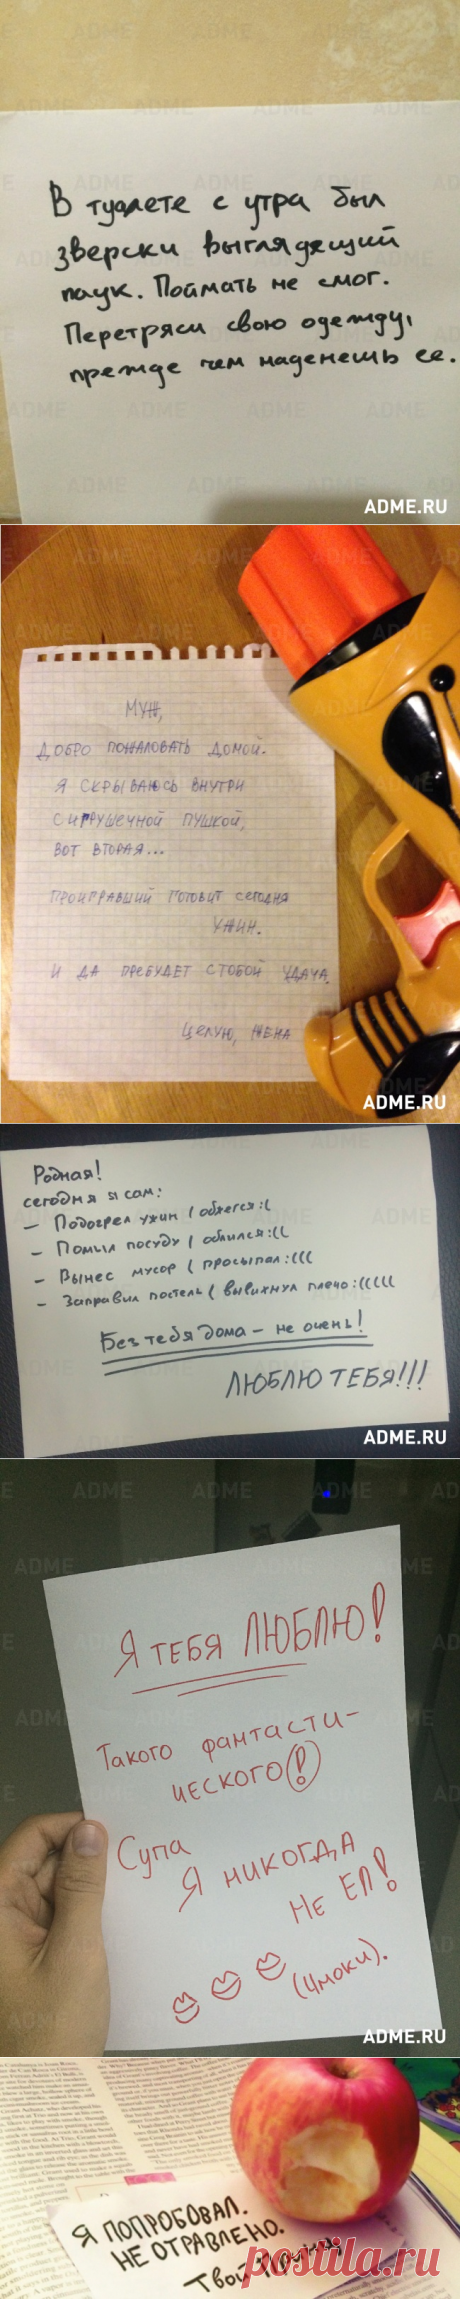 В туалете с утра был
зверски выглядящий
паук. Поймать не смог.
Перетряси свою одежду,
прежде чем наденешь ее.
ADME.RU
МУЖ,
ДОБРО ПОЖАЛОВАТЬ ДОМОЙ.
Я СКРЫВАЮСЬ ВНУТРИ
С ИГРУШЕЧНОЙ ПУШКОЙ,
ВОТ ВТОРАЯ...
ПРОИГРАВШИЙ ГОТОВИТ СЕГОДНЯ
УЖИН.
И ДА ПРЕБУДЕТ С ТОБОЙ УДАЧА.
ЦЕЛУЮ, ЖЕНА
ADME.RU
Родная!
сегодня я сам:
— Подогрел ужин (обжегся:(
— Помыл посуду (облился:((
— Вынес мусор (просыпал:(((
— Заправил постель (вывихнул плечо:(((((
Без тебя дома – не очень!
ЛЮБЛЮ ТЕБЯ!!!
ADME.RU
Я ТЕБЯ ЛЮБЛЮ!
Такого фантасти-
ческого!
Супа
Я НИКОГДА
НЕ ЕЛ!
(чмоки).
ADME.RU
Я ПОПРОБОВАЛ.
НЕ ОТРАВЛЕНО.
Твой Принц
postila.ru